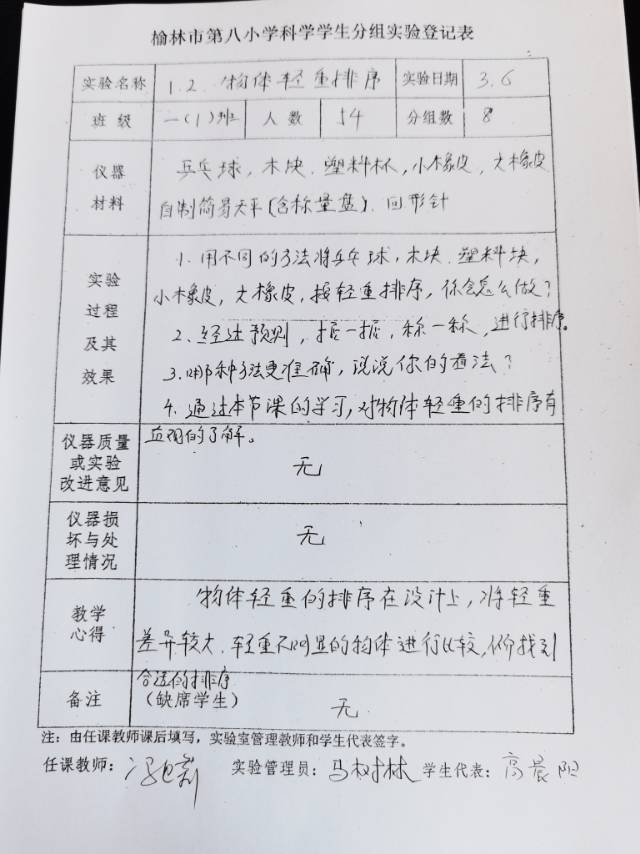 榆林市第八小学科学学生分组实验登记表
实验名称 1.2. 物体轻重排序 实验日期 3.6
班级 一(1)班 人数 54 分组数 8
仪器材料
乒乓球，木块．塑料杯，小橡皮，大橡皮
自制简易天平(含称量盘)．回形针
实验过程及其效果
1. 用不同的方法将乒乓球，木块．塑料块，
小橡皮，大橡皮，按轻重排序，你会怎么做？
2. 经过预测，掂一掂，称一称，进行排序。
3. 哪种方法更准确，说说你的看法？
4. 通过本节课的学习，对物体轻重的排序有
直观的了解。
仪器质量或实验改进意见
无
仪器损坏与处理情况
无
教学心得
物体轻重的排序在设计上，将轻重
差异较大．轻重不明显的物体进行比较，找到
合适的排序
备注 (缺席学生) 无
注：由任课教师课后填写，实验室管理教师和学生代表签字。
任课教师： 实验管理员：马树林 学生代表：高晨阳